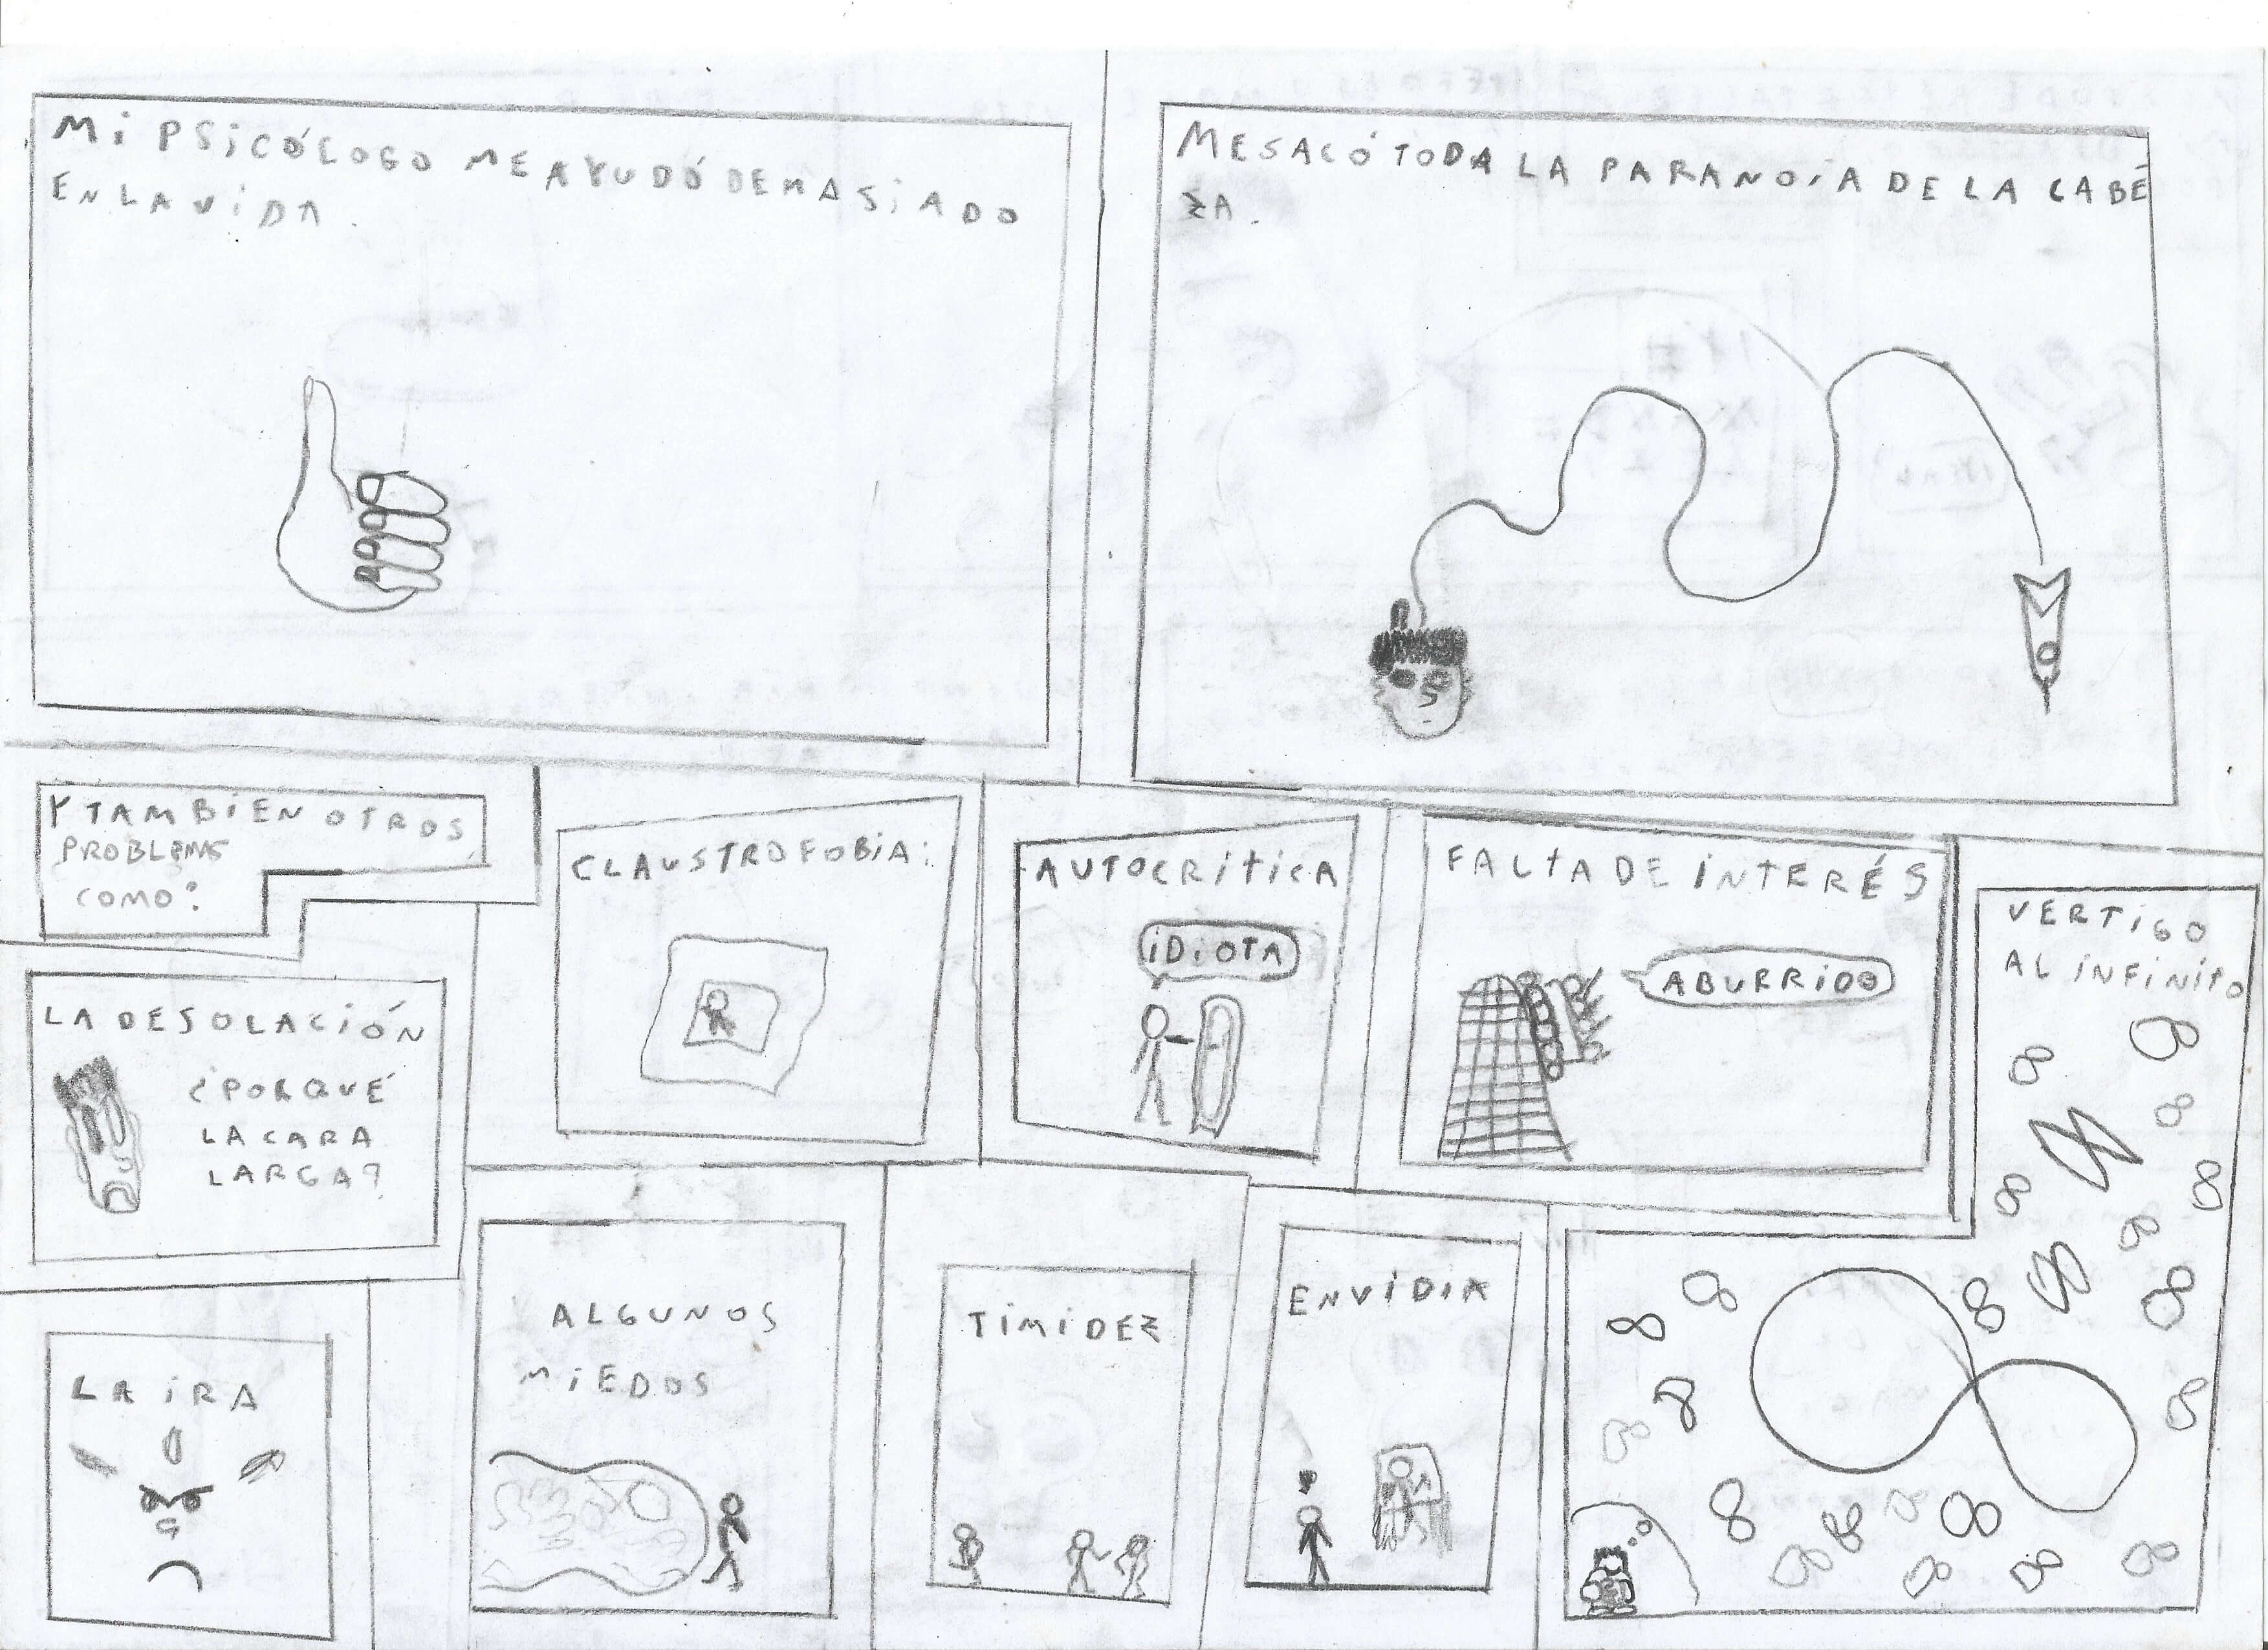 Mi PSiCÓLOGO ME AYUDÓ DEMASiADO
EN LA ViDA.
ME SACÓ TODA LA PARANOiA DE LA CABE
ZA.
Y TAMBiEN OTROS
PROBLEMAS
COMO:
CLAUSTROFOBiA:
AUTOCRiTiCA
iDiOTA
FALTA DE iNTERÉS
ABURRiDO
VERTiGO
AL iNFiNiTO
LA DESOLACiÓN
¿PORQUÉ
LA CARA
LARGA?
LA iRA
ALGUNOS
MiEDOS
TiMiDEZ
ENViDiA